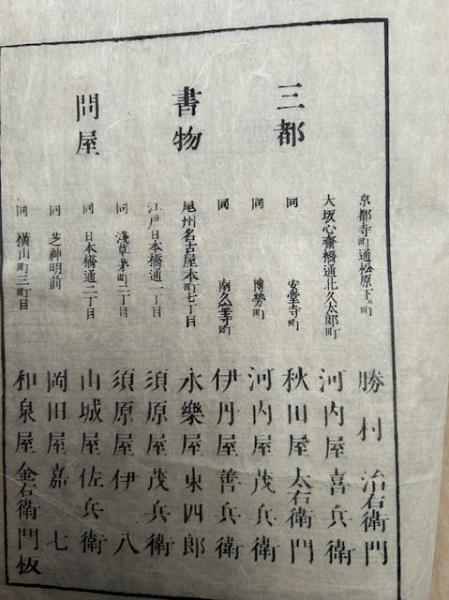 三都
書物
問屋
京都寺町通松原下ル町 勝村治右衛門
大坂心斎橋通北久太郎町 河内屋喜兵衛
同 安堂寺町 秋田屋太右衛門
同 博労町 河内屋茂兵衛
同 南久宝寺町 伊丹屋善兵衛
尾州名古屋本町七丁目 永樂屋東四郎
江戸日本橋通一丁目 須原屋茂兵衛
同 浅草茅町二丁目 須原屋伊八
同 日本橋通二丁目 山城屋佐兵衛
同 芝神明前 岡田屋嘉七
同 横山町三丁目 和泉屋金右衛門板